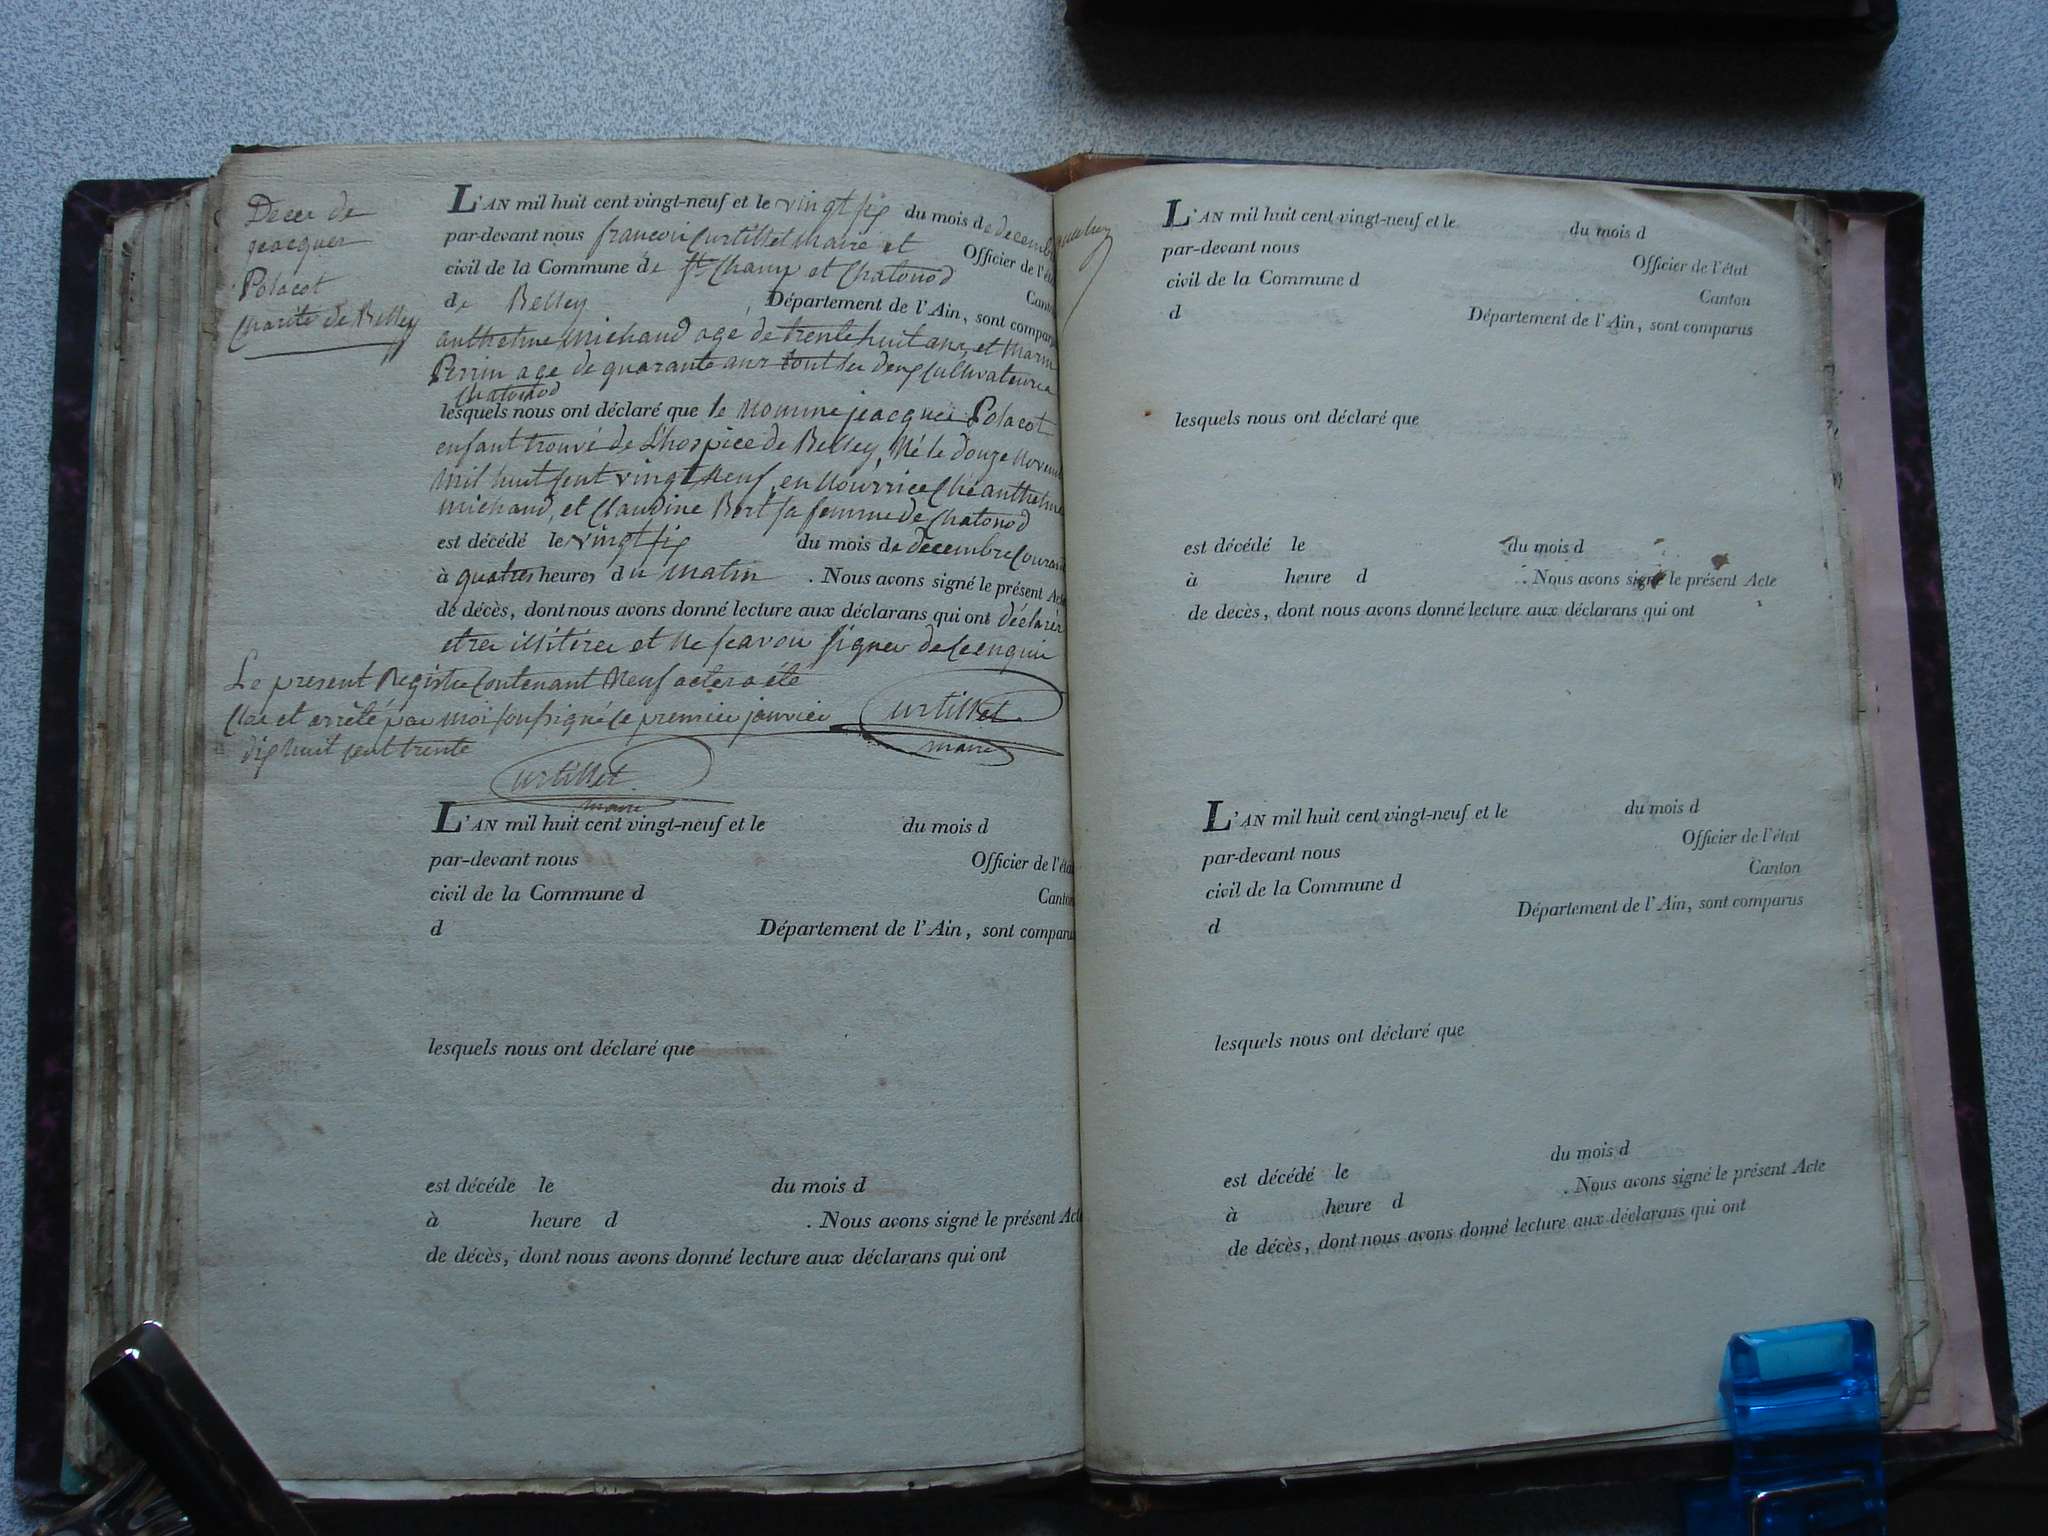 Deces de
jeacques
Polacot
Charité de Belley
L'AN mil huit cent vingt-neuf et le vingt six du mois de decembre
par-devant nous francois Curtillet Maire et Officier de l'état
civil de la Commune de st Champ et Chatonod Canton
de Belley , Département de l'Ain, sont comparus
anthelme Michaud age de trente huit ans, et Marin
Perrin age de quarante ans tout les deux Cultivateurs a
Chatonod
lesquels nous ont déclaré que le Nomme jeacques Polacot
enfant trouvé de L'hospice de Belley, Né le douze Novembre
Mil huit sent vingt Neuf, en Nourrice Ché anthelme
michaud, et Claudine Bert sa femme de Chatonod
est décédé le vingt six du mois de decembre Courant
à quatres heures du matin . Nous avons signé le présent Acte
de décès, dont nous avons donné lecture aux déclarans qui ont déclarér
etres illitérés et ne scavoir signer de ce enquis
Le present Registre Contenant Neuf actes a été
Clos et arrêté par moi soussigné le premier janvier Curtillet
dix huit sent trente maire
Curtillet
maire
L'AN mil huit cent vingt-neuf et le du mois d
par-devant nous Officier de l'état
civil de la Commune d Canton
d Département de l'Ain, sont comparus
lesquels nous ont déclaré que
est décédé le du mois d
à heure d . Nous avons signé le présent Acte
de décès, dont nous avons donné lecture aux déclarans qui ont
L'AN mil huit cent vingt-neuf et le du mois d
par-devant nous Officier de l'état
civil de la Commune d Canton
d Département de l'Ain, sont comparus
lesquels nous ont déclaré que
est décédé le du mois d
à heure d . Nous avons signé le présent Acte
de decès, dont nous avons donné lecture aux déclarans qui ont
L'AN mil huit cent vingt-neuf et le du mois d
par-devant nous Officier de l'état
civil de la Commune d Canton
d Département de l'Ain, sont comparus
lesquels nous ont déclaré que
est décédé le du mois d
à heure d . Nous avons signé le présent Acte
de décès, dont nous avons donné lecture aux déclarans qui ont